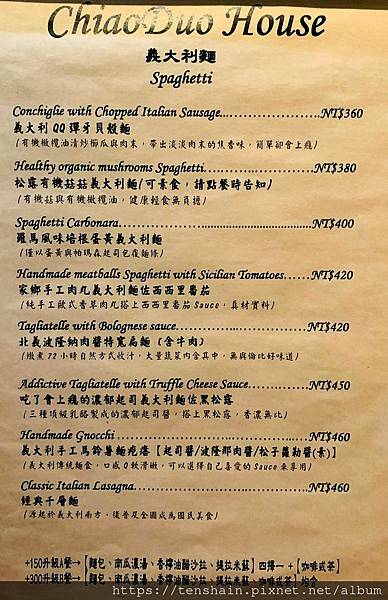 ChiaoDuo House
義大利麵
Spaghetti
Conchiglie with Chopped Italian Sausage.....................NT$360
義大利QQ彈牙貝殼麵
(有機橄欖油清炒櫛瓜與肉末，帶出淡淡肉末的焦香味，簡單卻會上癮)
Healthy organic mushrooms Spaghetti........................NT$380
松露有機菇菇義大利麵(可素食，請點餐時告知)
(有機菇與有機橄欖油，健康輕食無負擔)
Spaghetti Carbonara............................................NT$400
羅馬風味培根蛋黃義大利麵
(僅以蛋黃與帕瑪森起司包覆麵條)
Handmade meatballs Spaghetti with Sicilian Tomatoes......NT$420
家鄉手工肉丸義大利麵佐西西里番茄
(純手工歐式香草肉丸搭上西西里番茄Sauce，真材實料)
Tagliatelle with Bolognese sauce..............................NT$420
北義波隆納肉醬特寬扁麵 (含牛肉)
(燉煮72小時自然方式收汁，大量蔬菜肉含其中，無與倫比好味道)
Addictive Tagliatelle with Truffle Cheese Sauce..............NT$450
吃了會上癮的濃郁起司義大利麵佐黑松露
(三種頂級乳酪製成的濃郁起司醬，搭上黑松露，香濃無比)
Handmade Gnocchi .............................................NT$460
義大利手工馬鈴薯麵疙瘩【起司醬/波隆那肉醬/松子羅勒醬(素)】
(義大利傳統麵食，口感Q軟滑嫩，可以選擇自己喜愛的Sauce來享用)
Classic Italian Lasagna..........................................NT$460
經典千層麵
(源起於義大利南方，後普及全國成為國民美食)
+150升級A餐→【麵包、南瓜濃湯、香檸油醋沙拉、提拉米蘇】四擇一 +【咖啡或茶】
+300升級B餐→【麵包、南瓜濃湯、香檸油醋沙拉、提拉米蘇、咖啡或茶】均含
https://tenshain.pixnet.net/album